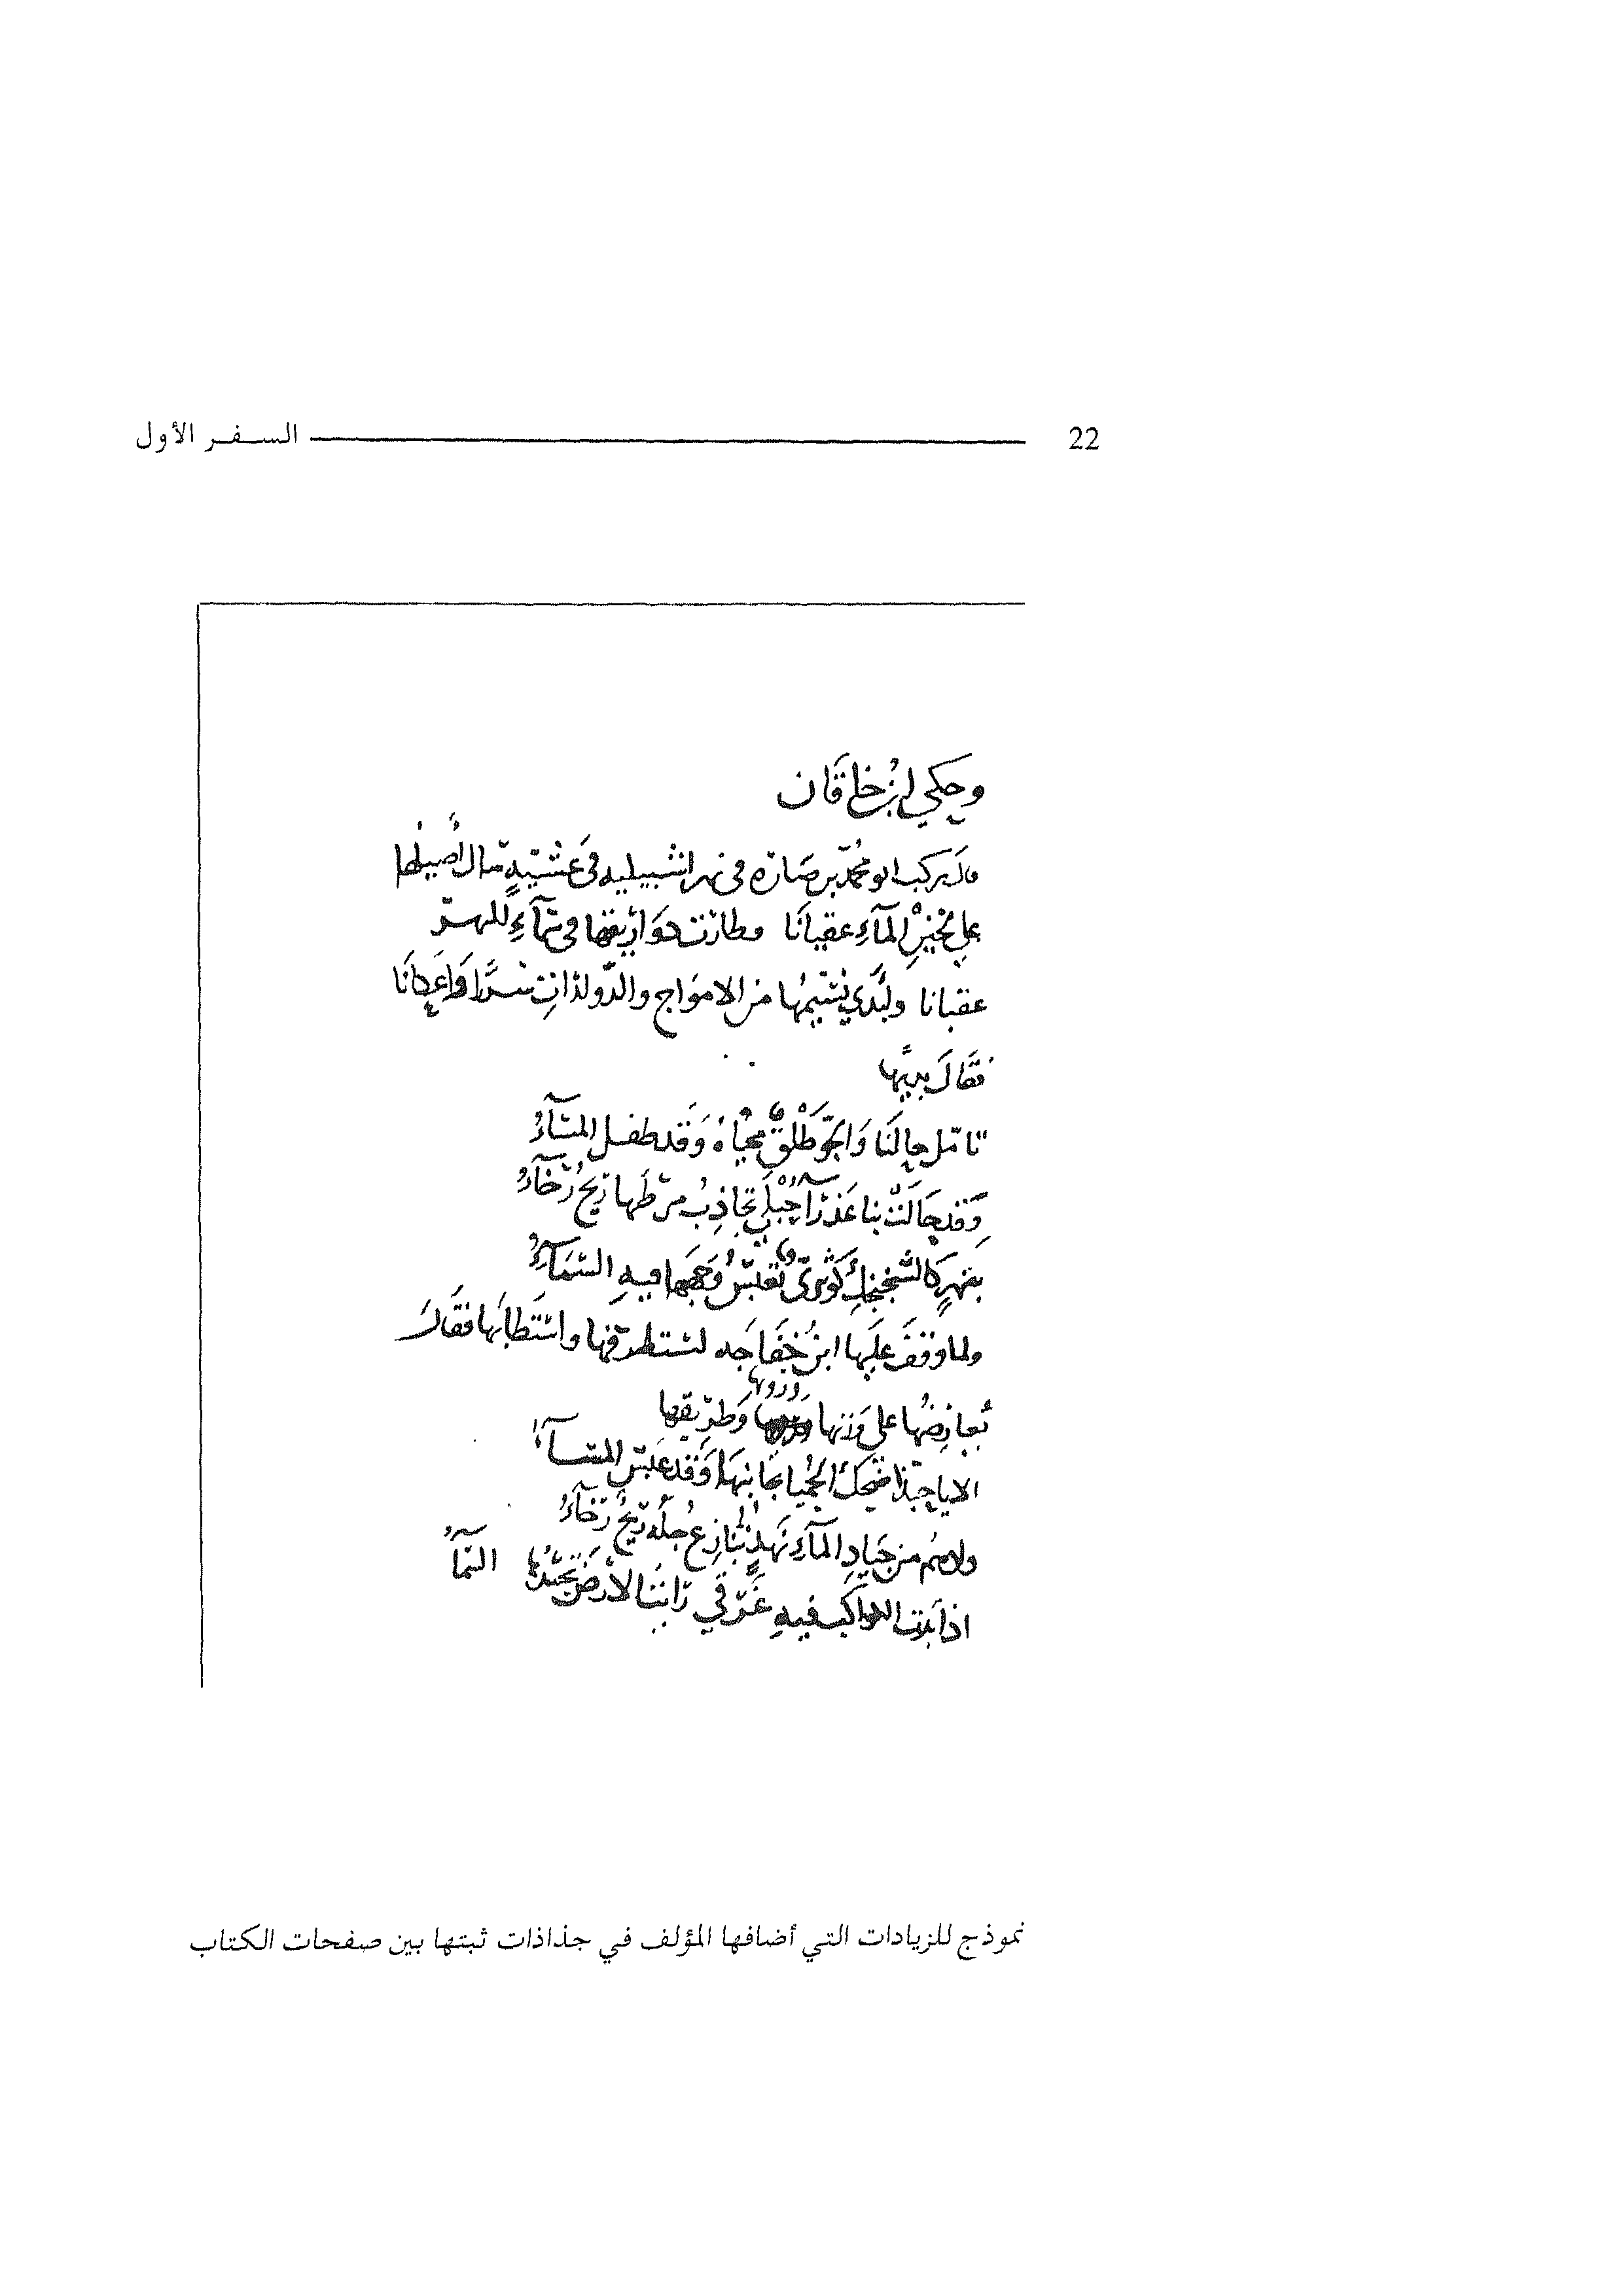 22 السفر الأول
وحكي ابن خاقان
قال ركب ابو محمد بن صارة في نهر اشبيلية في عشية سال أصيلها
على لجين الماء عقيانا وطارت زواريقها في سماء النهر
عقبانا وأبدى نسيمها من الامواج والدارات سررا واعكانا
فقال بديها
تأمل حالنا والجو طلق محياه وقد طفل المساء
وقد جالت بنا عذراء حبلى تجاذب مرطها ريح رخاء
بنهر كالسجنجل كوثري تعبس وجهها فيه السماء
ولما وقف عليها ابن خفاجه استطرفها واستطابها فقال
يعارضها على وزنها ورويها وطريقها
الا يا حبذا ضحك الحميا بحانتها وقد عبس المساء
وادهم من جياد الماء نهد تنازع جله ريح رخاء
اذا بدت الكواكب فيه غرقى رأيت الأرض تحسدها السماء
نموذج للزيادات التي أضافها المؤلف في جذاذات ثبتها بين صفحات الكتاب